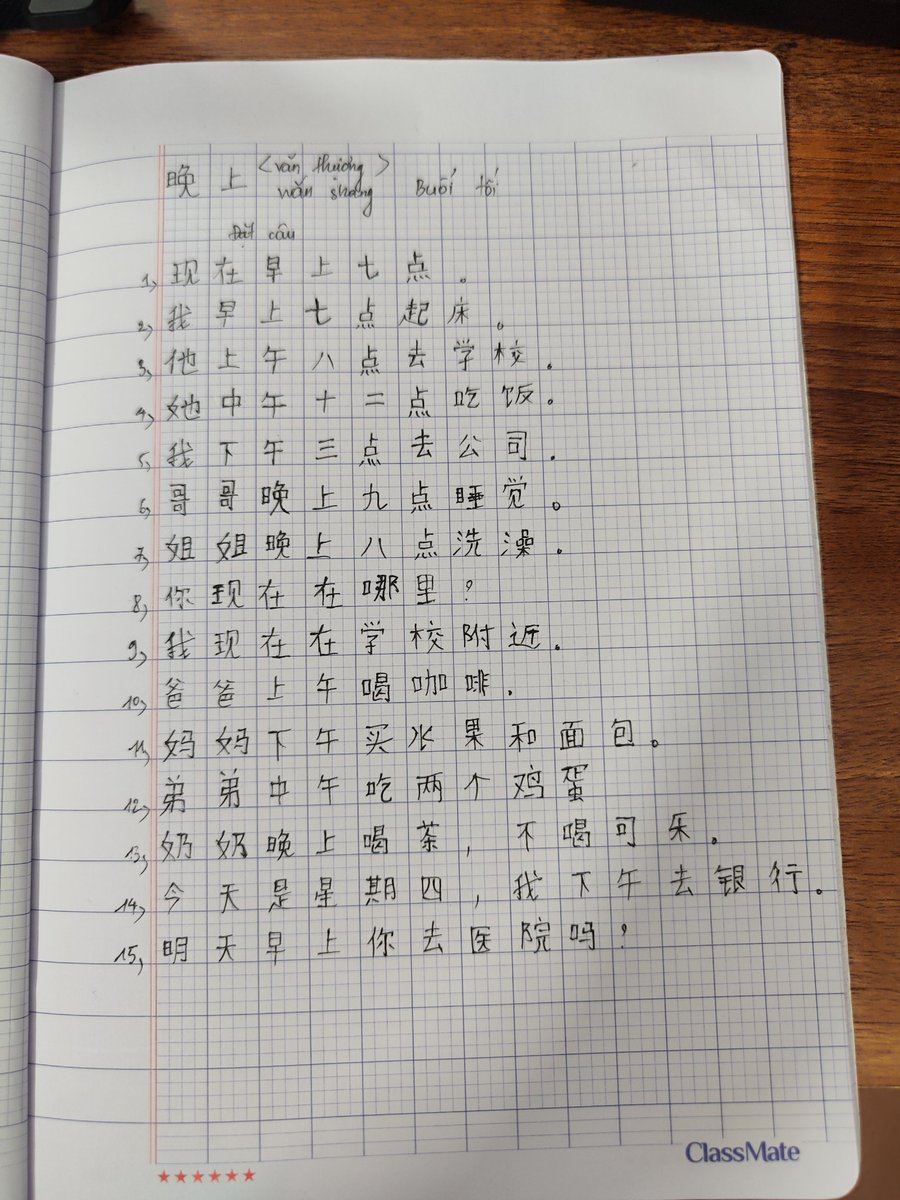 晚上 <văn thương> Buổi tối
wǎn shang
Đặt câu
1, 现在早上七点。
2, 我早上七点起床。
3, 他上午八点去学校。
4, 她中午十二点吃饭。
5, 我下午三点去公司.
6, 哥哥晚上九点睡觉。
7, 姐姐晚上八点洗澡。
8, 你现在在哪里?
9, 我现在在学校附近。
10, 爸爸上午喝咖啡.
11, 妈妈下午买水果和面包。
12, 弟弟中午吃两个鸡蛋
13, 奶奶晚上喝茶, 不喝可乐。
14, 今天是星期四, 我下午去银行。
15, 明天早上你去医院吗?
ClassMate